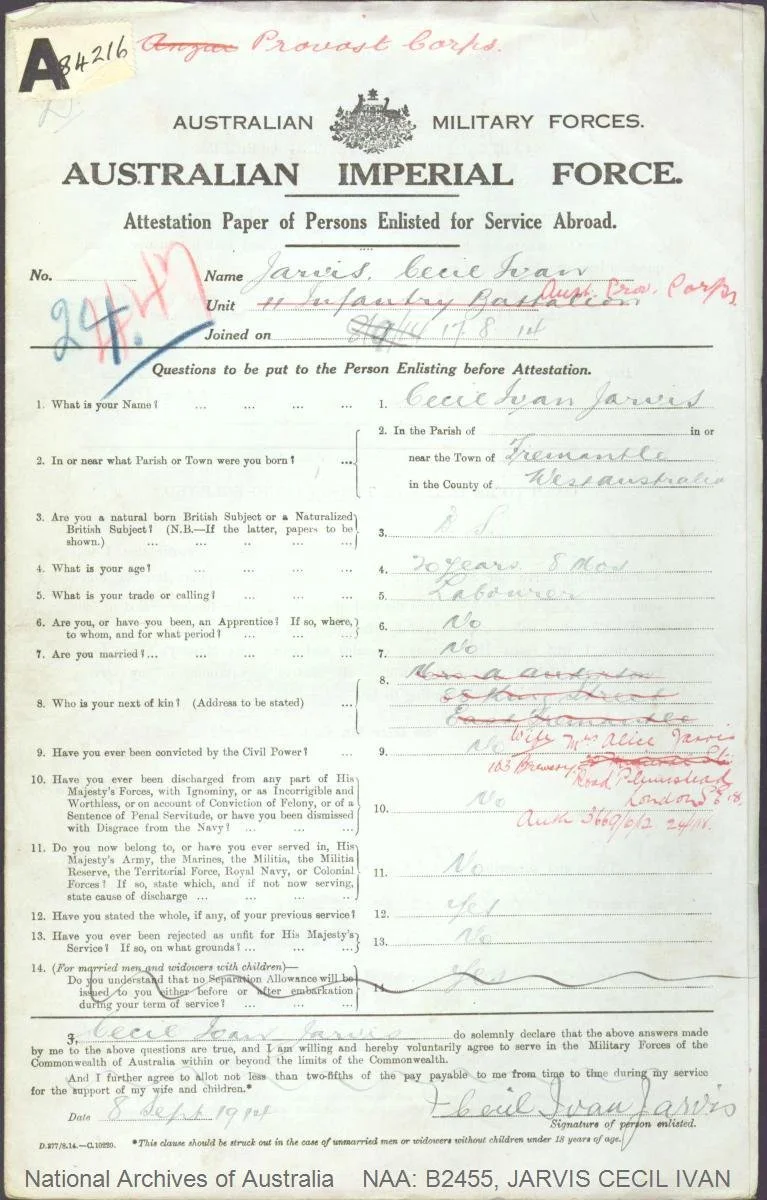 A 84216
Anzac Provost Corps.
AUSTRALIAN MILITARY FORCES.
AUSTRALIAN IMPERIAL FORCE.
Attestation Paper of Persons Enlisted for Service Abroad.
No. Name Jarvis, Cecil Ivan
Unit 11 Infantry Battalion Aust. Prov. Corps
Joined on 8/9/14 17 8 14
Questions to be put to the Person Enlisting before Attestation.
1. What is your Name? ... ... ... ... 1. Cecil Ivan Jarvis
2. In or near what Parish or Town were you born? ... 2. In the Parish of in or
near the Town of Fremantle
in the County of Westaustralia
3. Are you a natural born British Subject or a Naturalized
British Subject? (N.B.—If the latter, papers to be
shown.) ... ... ... ... 3. B S.
4. What is your age? ... ... ... 4. 20 years 8 Mos
5. What is your trade or calling? ... ... ... 5. Labourer
6. Are you, or have you been, an Apprentice? If so, where,
to whom, and for what period? ... ... ... 6. No
7. Are you married? ... ... ... ... ... 7. No
8. Who is your next of kin? (Address to be stated) ... 8. Mrs A Anderson
King Street
East Fremantle
Wife Mrs Alice Jarvis
9. Have you ever been convicted by the Civil Power? ... 9. No
103 Brewery
Road Plumstead
London SE 18.
10. Have you ever been discharged from any part of His
Majesty's Forces, with Ignominy, or as Incorrigible and
Worthless, or on account of Conviction of Felony, or of a
Sentence of Penal Servitude, or have you been dismissed
with Disgrace from the Navy? ... ... ... 10. No
Auth
11. Do you now belong to, or have you ever served in, His
Majesty's Army, the Marines, the Militia, the Militia
Reserve, the Territorial Force, Royal Navy, or Colonial
Forces? If so, state which, and if not now serving,
state cause of discharge ... ... ... .. 11. No
12. Have you stated the whole, if any, of your previous service? 12. Yes
13. Have you ever been rejected as unfit for His Majesty's
Service? If so, on what grounds? ... ... ... 13. No
14. (For married men and widowers with children)—
Do you understand that no Separation Allowance will be
issued to you either before or after embarkation
during your term of service? ... ... ... 14 Yes
I, Cecil Ivan Jarvis do solemnly declare that the above answers made
by me to the above questions are true, and I am willing and hereby voluntarily agree to serve in the Military Forces of the
Commonwealth of Australia within or beyond the limits of the Commonwealth.
And I further agree to allot not less than two-fifths of the pay payable to me from time to time during my service
for the support of my wife and children.*
Date 8 Sept 1914 Cecil Ivan Jarvis
Signature of person enlisted.
D.277/8.14.—C.10220. *This clause should be struck out in the case of unmarried men or widowers without children under 18 years of age.
National Archives of Australia NAA: B2455, JARVIS CECIL IVAN